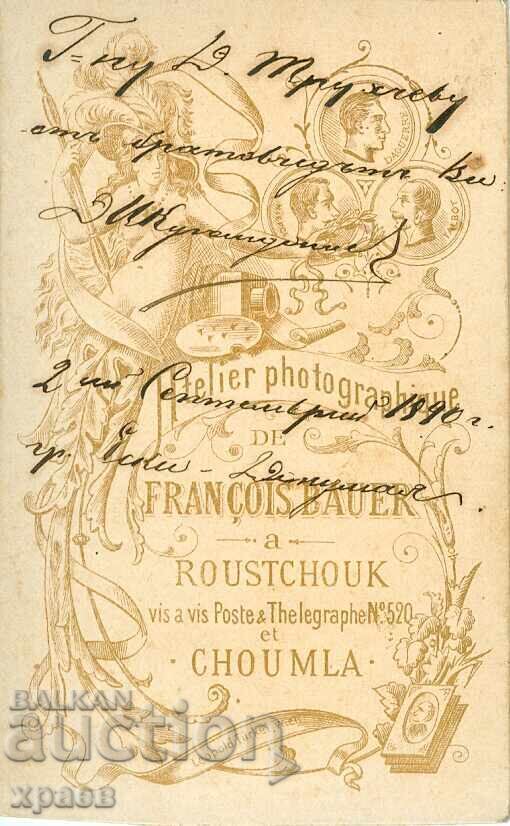 Г-ну Д. Трухчеву
отъ братовчедътъ Ви:
Д. И.
DAGUERRE
2 ий Септемврий 1890 г.
гр. Ески-Джумая
Atelier photographique
DE
FRANÇOIS BAUER
a
ROUSTCHOUK
vis a vis Poste & Thelegraphe No. 520
et
CHOUMLA
BALKAN
auction
храсв